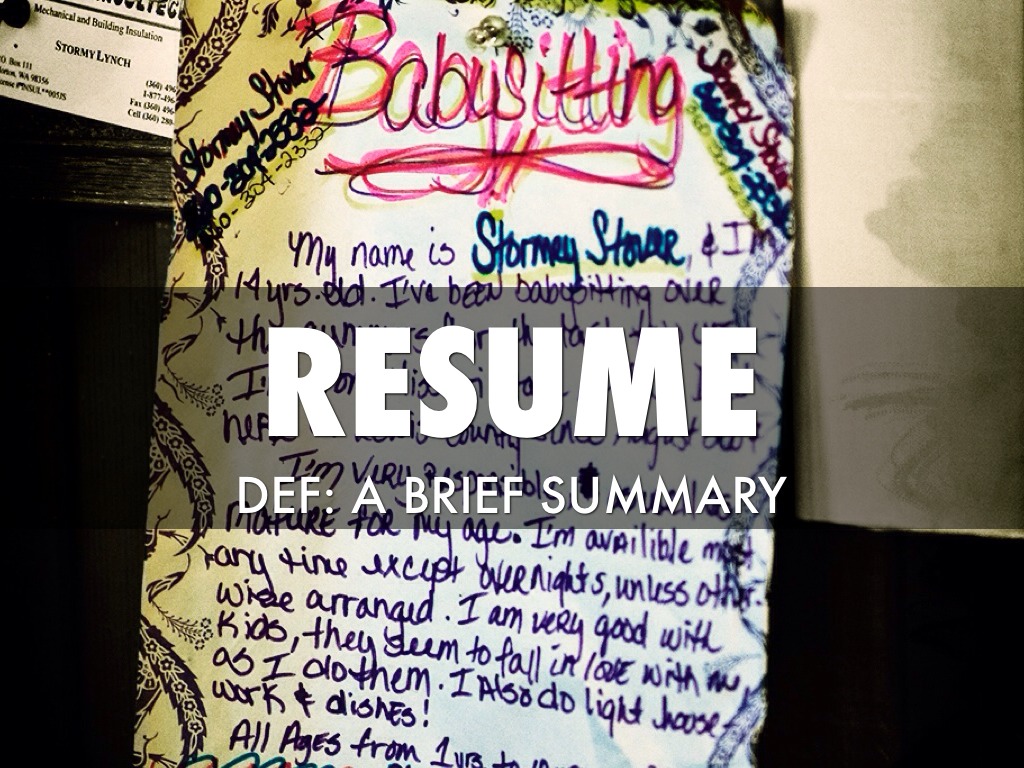 Mechanical and Building Insulation
STORMY LYNCH
Box 111
WA 98356
(360) 496
1-877-496
Fax (360) 496
Cell (360) 280
Babysitting
Stormey Stover
360-304-2332
Stormey Stover
My name is Stormey Stover, & I'm
14 yrs. old. I've been babysitting over
RESUME
county since August
I'm very responsible &
DEF: A BRIEF SUMMARY
mature for my age. I'm availible most
any time except overnights, unless other-
wise arranged. I am very good with
kids, they seem to fall in love with me,
as I do them. I Also do light house-
work & dishes!
All Ages from 1yrs to